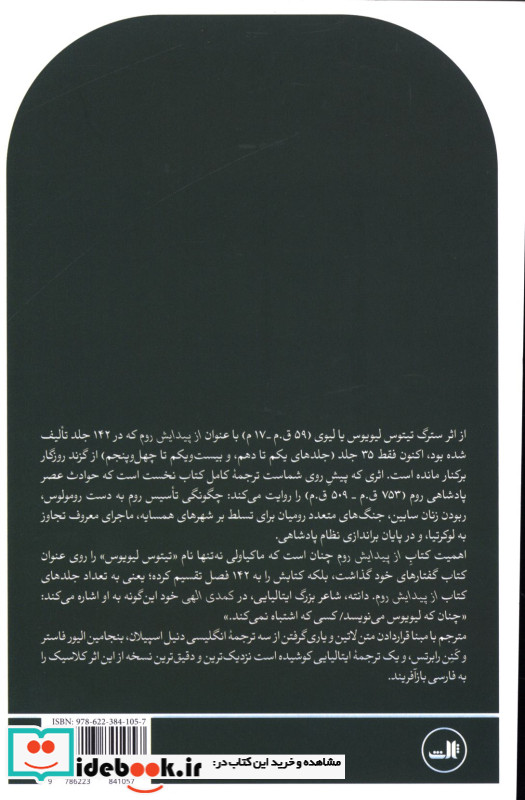 از اثر سترگ تیتوس لیویوس یا لیوی (۵۹ ق.م ـ ۱۷ م) با عنوان از پیدایش روم که در ۱۴۲ جلد تألیف
شده بود، اکنون فقط ۳۵ جلد (جلدهای یکم تا دهم، و بیست‌ویکم تا چهل‌وپنجم) از گزند روزگار
برکنار مانده است. اثری که پیش روی شماست ترجمهٔ کامل کتاب نخست است که حوادث عصر
پادشاهی روم (۷۵۳ ق.م ـ ۵۰۹ ق.م) را روایت می‌کند: چگونگی تأسیس روم به دست رومولوس،
ربودن زنان سابین، جنگ‌های متعدد رومیان برای تسلط بر شهرهای همسایه، ماجرای معروف تجاوز
به لوکرتیا، و در پایان براندازی نظام پادشاهی.
اهمیت کتابِ از پیدایش روم چنان است که ماکیاولی نه‌تنها نام «تیتوس لیویوس» را روی عنوان
کتاب گفتارهای خود گذاشت، بلکه کتابش را به ۱۴۲ فصل تقسیم کرده؛ یعنی به تعداد جلدهای
کتاب از پیدایش روم. دانته، شاعر بزرگ ایتالیایی، در کمدی الهی خود این‌گونه به او اشاره می‌کند:
«چنان که لیویوس می‌نویسد/ کسی که اشتباه نمی‌کند.»
مترجم با مبنا قراردادن متن لاتین و یاری‌گرفتن از سه ترجمهٔ انگلیسی دنیل اسپیلان، بنجامین الیور فاستر
و کَنِن رابرتس، و یک ترجمهٔ ایتالیایی کوشیده است نزدیک‌ترین و دقیق‌ترین نسخه از این اثر کلاسیک را
به فارسی بازآفریند.
ISBN: 978-622-384-105-7
9 786223 841057
ثالث
idebook.ir
مشاهده و خرید این کتاب در: